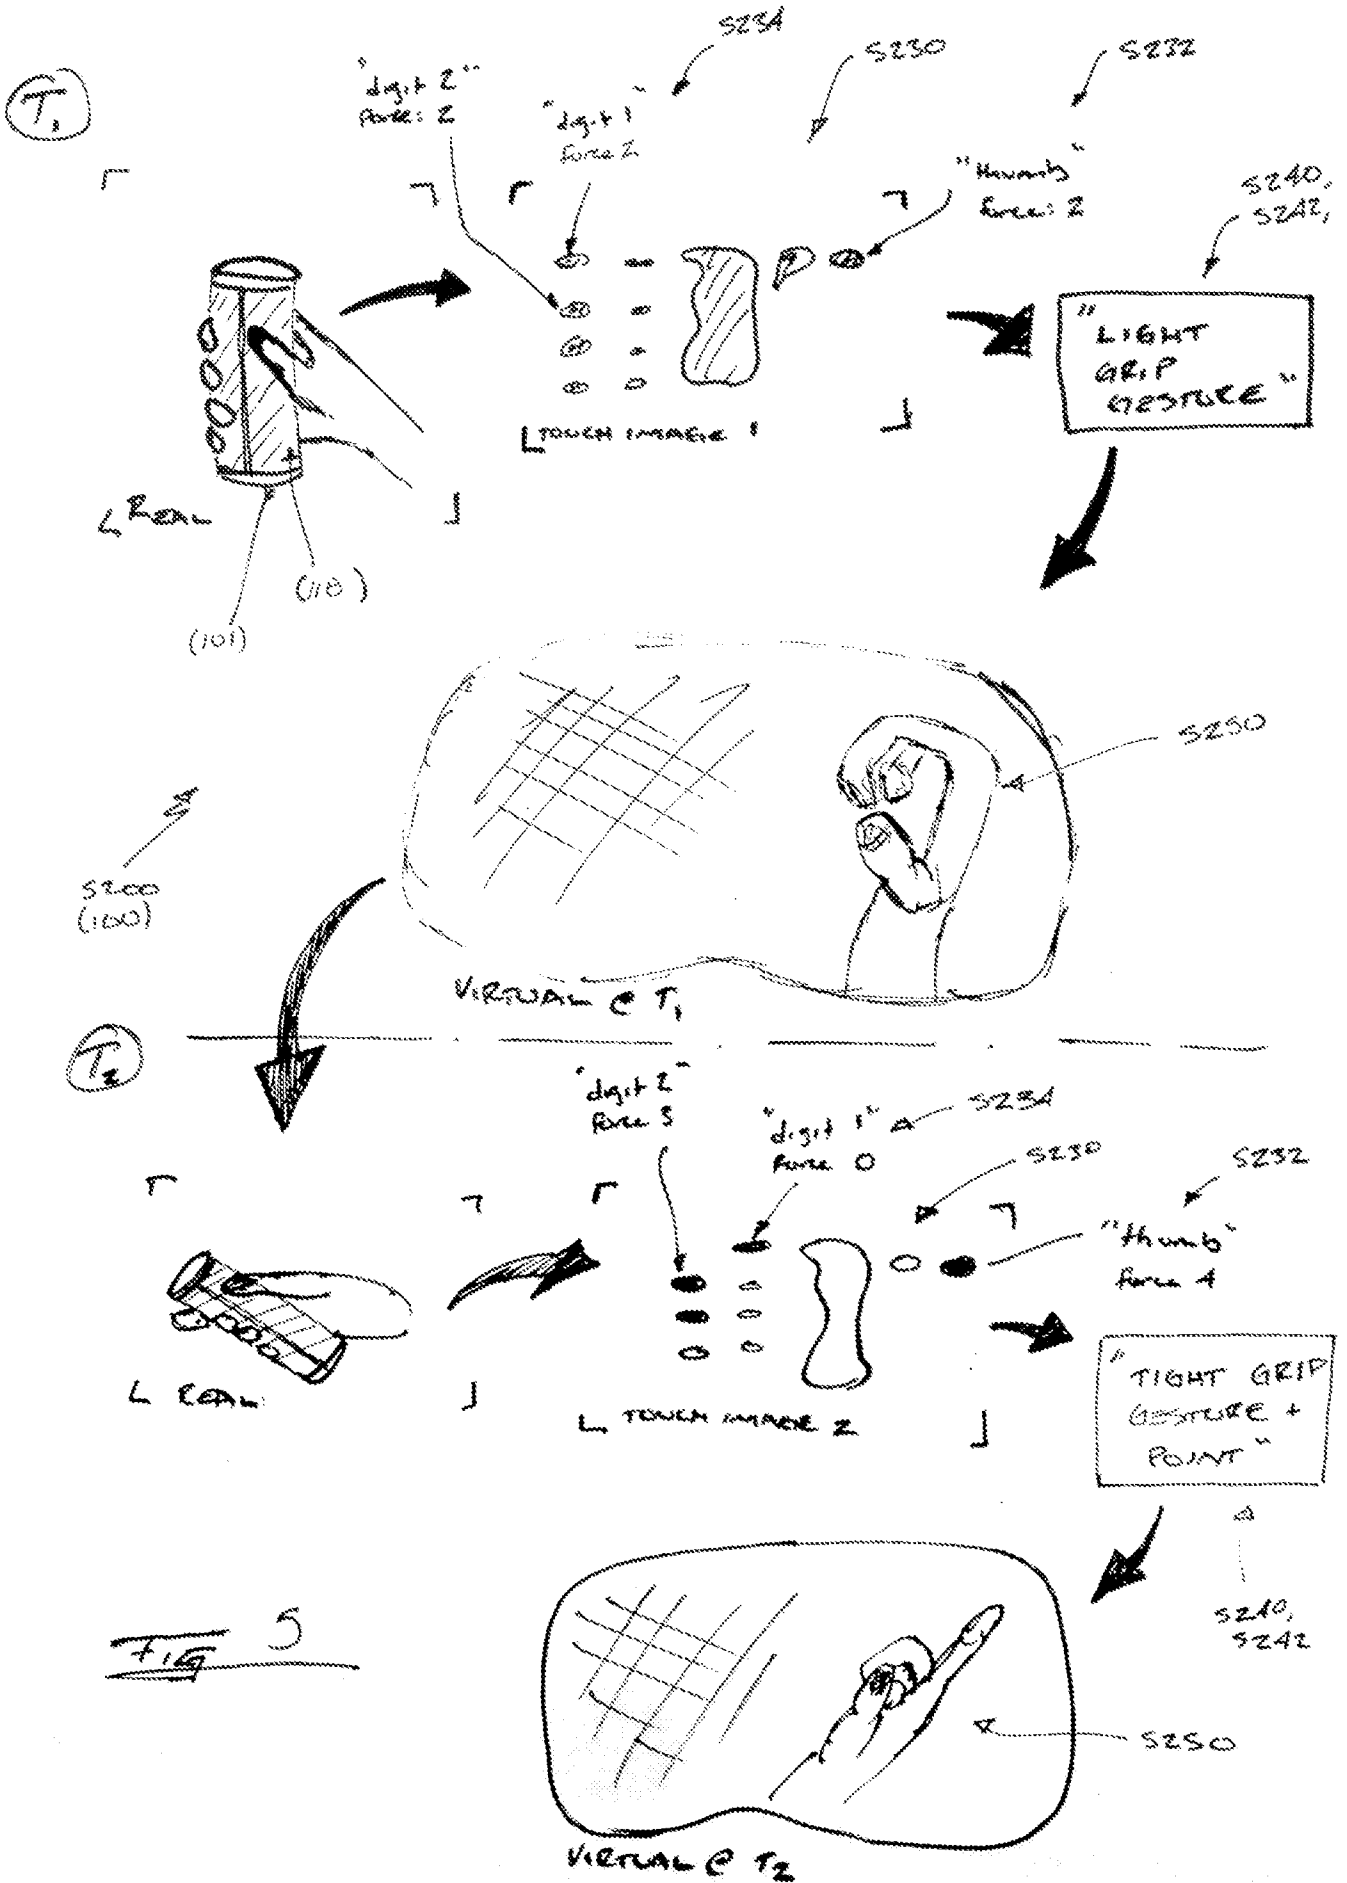 S234
S230
S232
T1
"digit 2"
Force: 2
"digit 1"
Force 2
"thumb"
force: 2
S240,
S242,
"LIGHT
GRIP
GESTURE"
TOUCH IMAGE 1
REAL
(110)
(101)
S250
S200
(100)
VIRTUAL @ T1
T2
"digit 2"
Force 3
"digit 1"
Force 0
S234
S230
S232
"thumb"
force 4
REAL
TOUCH IMAGE 2
"TIGHT GRIP
GESTURE +
POINT"
S240,
S242
FIG 5
S250
VIRTUAL @ T2